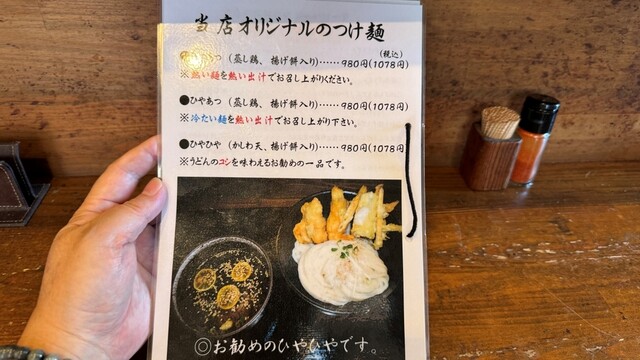 当店オリジナルのつけ麺
(税込)
つ (蒸し鶏、揚げ餅入り)……980円(1078円)
※熱い麺を熱い出汁でお召し上がりください。
●ひやあつ (蒸し鶏、揚げ餅入り)……980円(1078円)
※冷たい麺を熱い出汁でお召し上がり下さい。
●ひやひや (かしわ天、揚げ餅入り)……980円(1078円
※うどんのコシを味わえるお勧めの一品です。
◎お勧めのひやひやです。